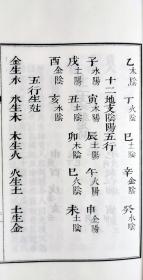 乙木陰 丁火陰 巳土陰 辛金陰 癸水陰
十二地支陰陽五行
子水陽 寅木陽 辰土陽 午火陽 申金陽
戌土陽 丑土陰 卯木陰 巳火陰 未土陰
酉金陰 亥水陰
五行生尅
金生水 水生木 木生火 火生土 土生金